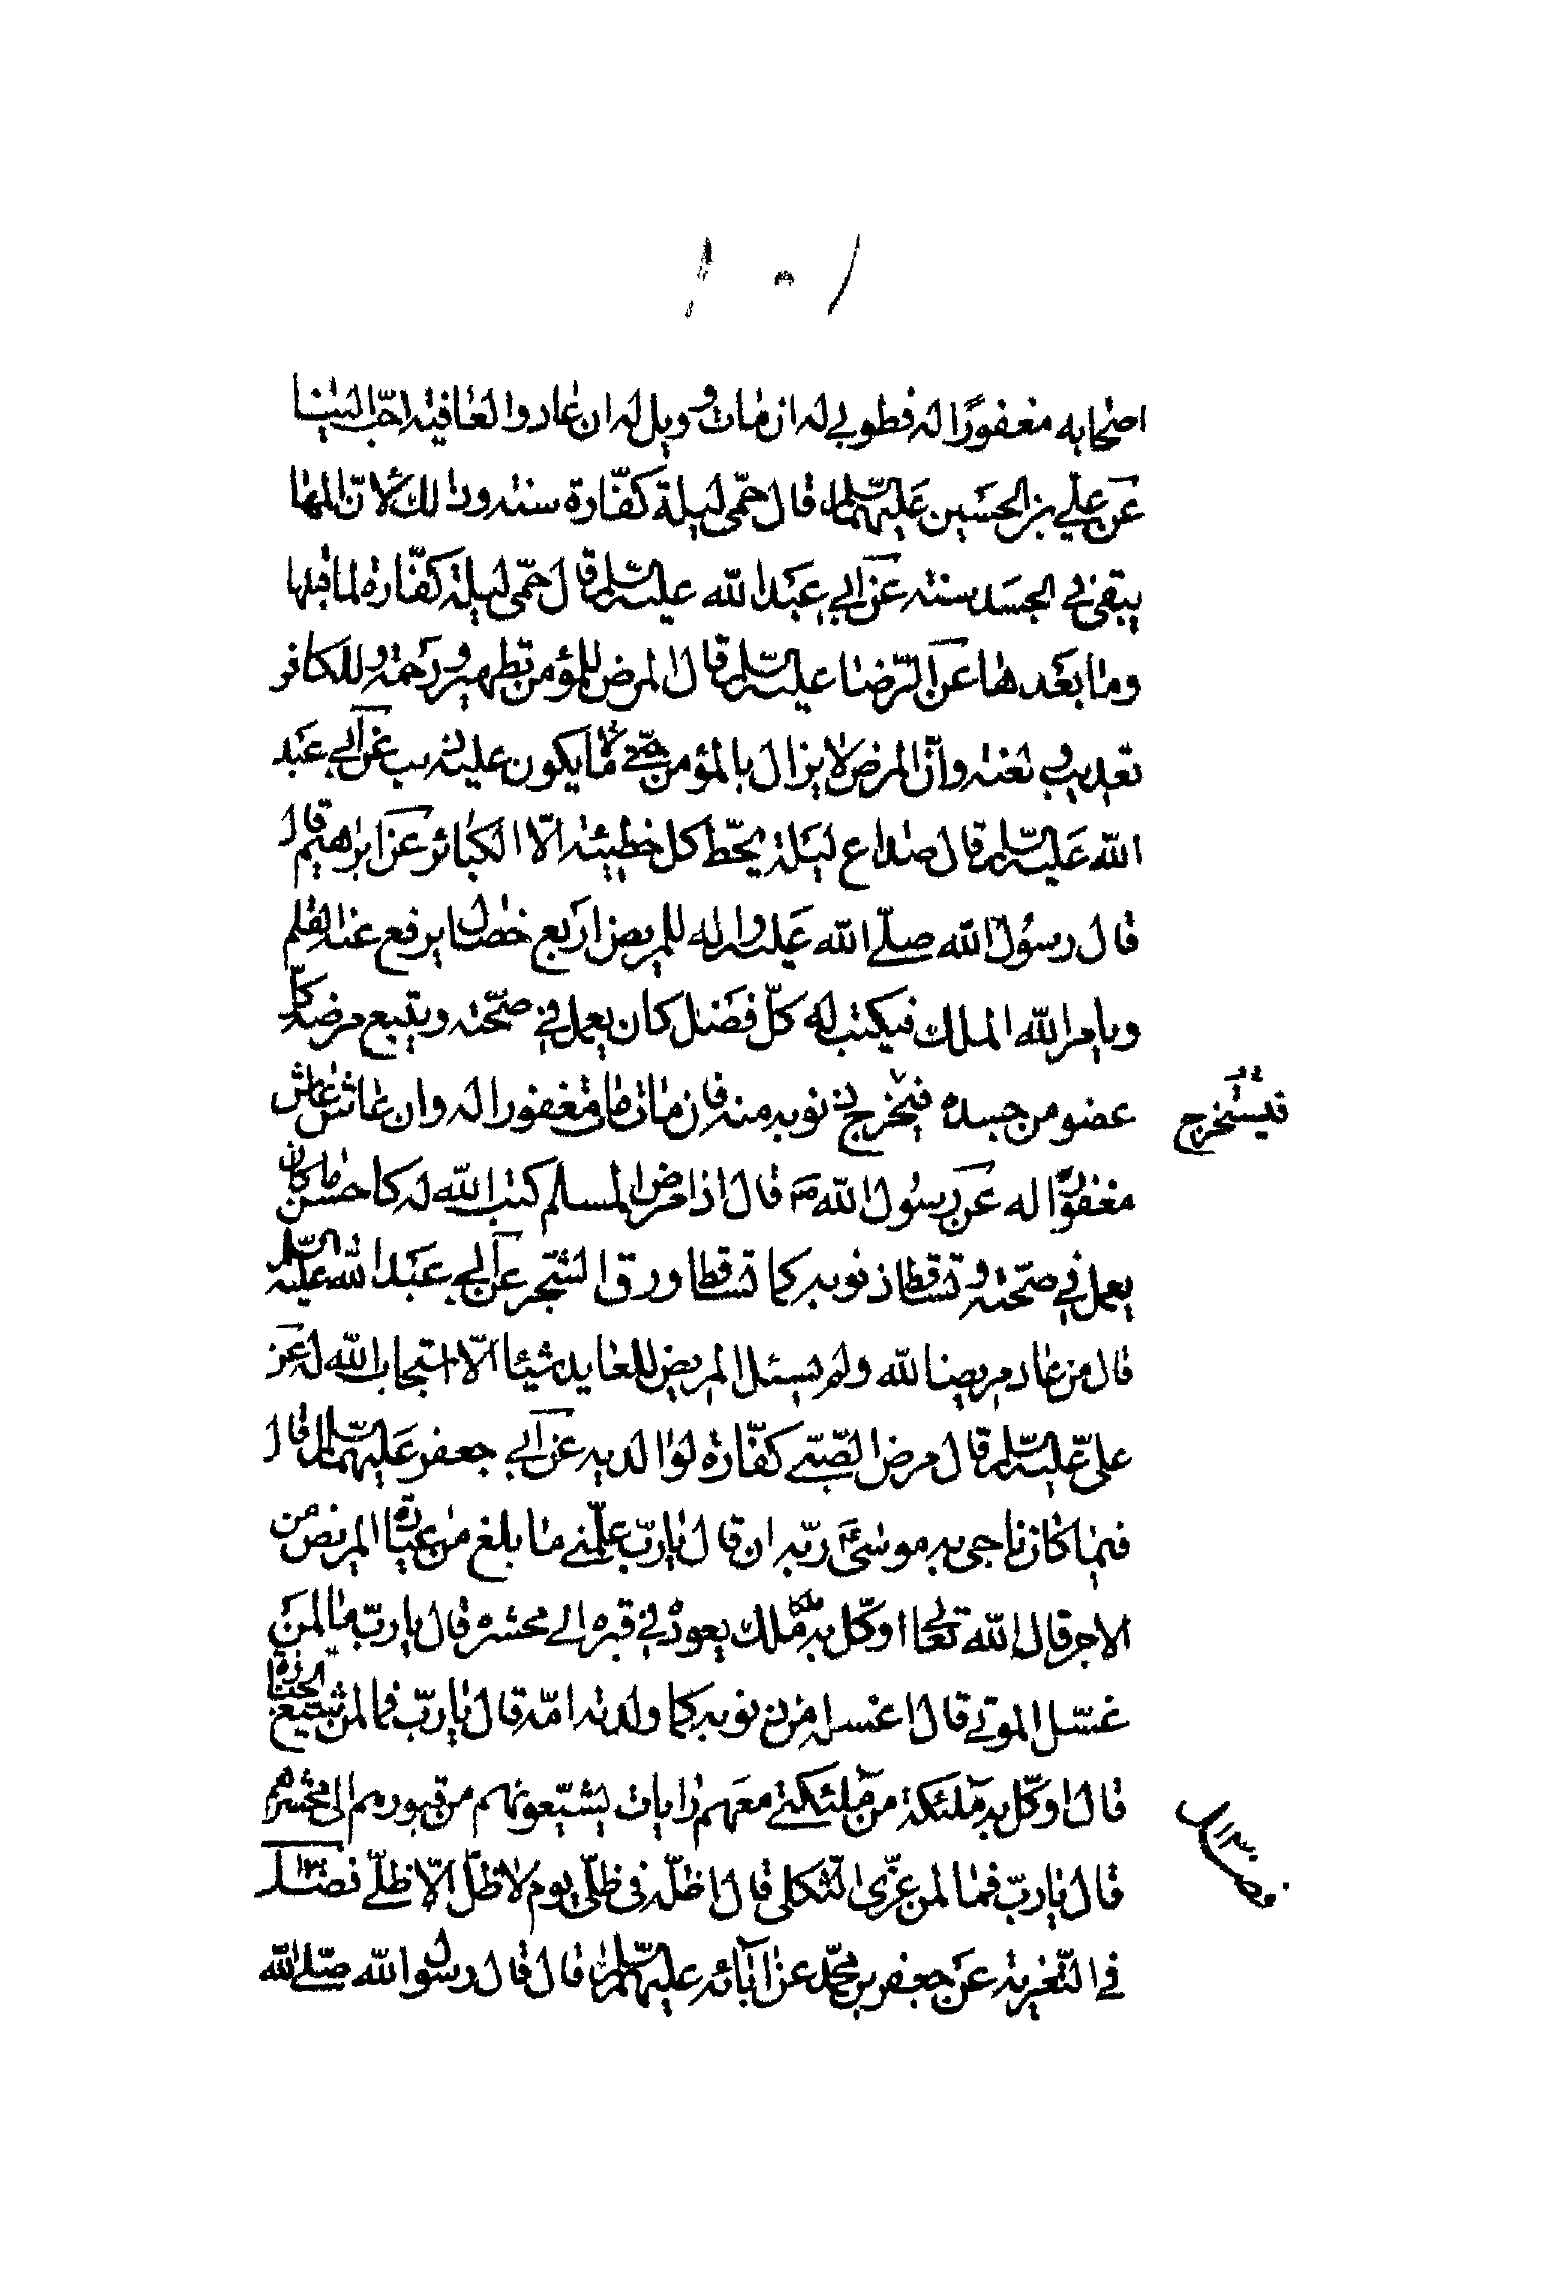 اصحابه مغفورًا له فطوبى له ان مات و ويل له ان عاد والعافية احبّ الينا
عن علي بن الحسين عليهما السلام قال حمّى ليلة كفّارة سنة وذالك لانّ المها
يبقى في الجسد سنة عن ابي عبد الله عليه السلم قال حمّى ليلة كفّارة لما قبلها
وما بعدها عن الرّضا عليه السّلم قال المرض للمؤمن تطهير ورحمة وللكافر
تعذيب و لعنة وانّ المرض لا يزال بالمؤمن حتّى لا ما يكون عليه ذنب عن ابي عبد
الله عليه السّلم قال صداع ليلة يحطّ كل خطيئة الّا الكبائر عن ابراهيم قال
قال رسول الله صلّى الله عليه واله للمريض اربع خصال يرفع عنه القلم
ويامر الله الملك فيكتب له كلّ فضل كان يعمل في صحّته ويتبع مرضه كلّ
عضو من جسده فيخرج ذنوبه منه فان مات مات مغفورا له وان عاش عاش
فيستخرج
مغفورًا له عن رسول الله ص قال اذا مرض المسلم كتب الله له كاحسن ما كان
يعمل في صحّته و تساقط ذنوبه كما تساقط ورق الشجر عن ابي عبد الله عليه السّلم
قال من عاد مريضا لله ولم يسئل المريض للعايد شيئا الّا استجاب الله له عن
علىّ عليه السّلم قال مرض الصّبيّ كفّارة لوالديه عن ابي جعفر عليهما السّلم قال
فيما كان ناجى به موسى ع ربّه ان قال يا ربّ علّمني ما بلغ من عيادة المريض من
الاجر قال الله تعالى اوكّل به ملكا ملك يعوده في قبره الى محشره قال يا ربّ ما لمن
غسّل الموتى قال اغسله من ذنوبه كما ولدته امّه قال يا ربّ فما لمن شيّع الجنازة
قال اوكّل به ملئكة من ملئكتي معهم رايات يشيّعونهم من قبورهم الى محشرهم
قال يا ربّ فما لمن عزّى الثّكلى قال اظلّه في ظلّي يوم لا ظلّ الّا ظلّي فصل
في التّعزية عن جعفر بن محمّد عن آبائه عليهم السّلم قال قال رسول الله صلّى الله